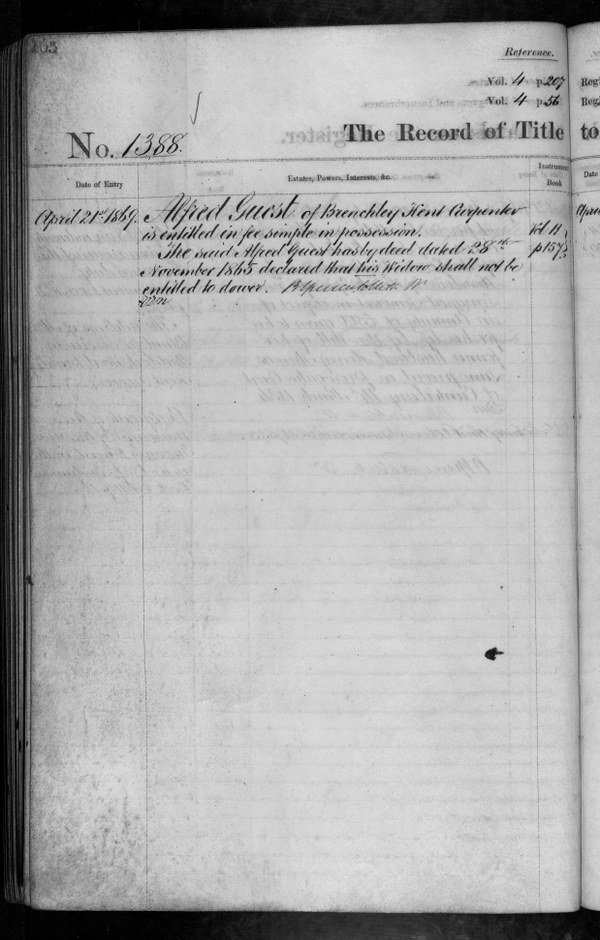 Reference.
Vol. 4 p. 207
Vol. 4 p. 56
No. 1388.
The Record of Title
to
Date of Entry
Estates, Powers, Interests, &c.
Instrument
Book
Date
April 21st 1869.
Alfred Guest of Brenchley Kent Carpenter
is entitled in fee simple in possession.
The said Alfred Guest has by deed dated 28th
November 1865 declared that his Widow shall not be
entitled to dower.
Vol 11
p 157
Regi
Regi
April